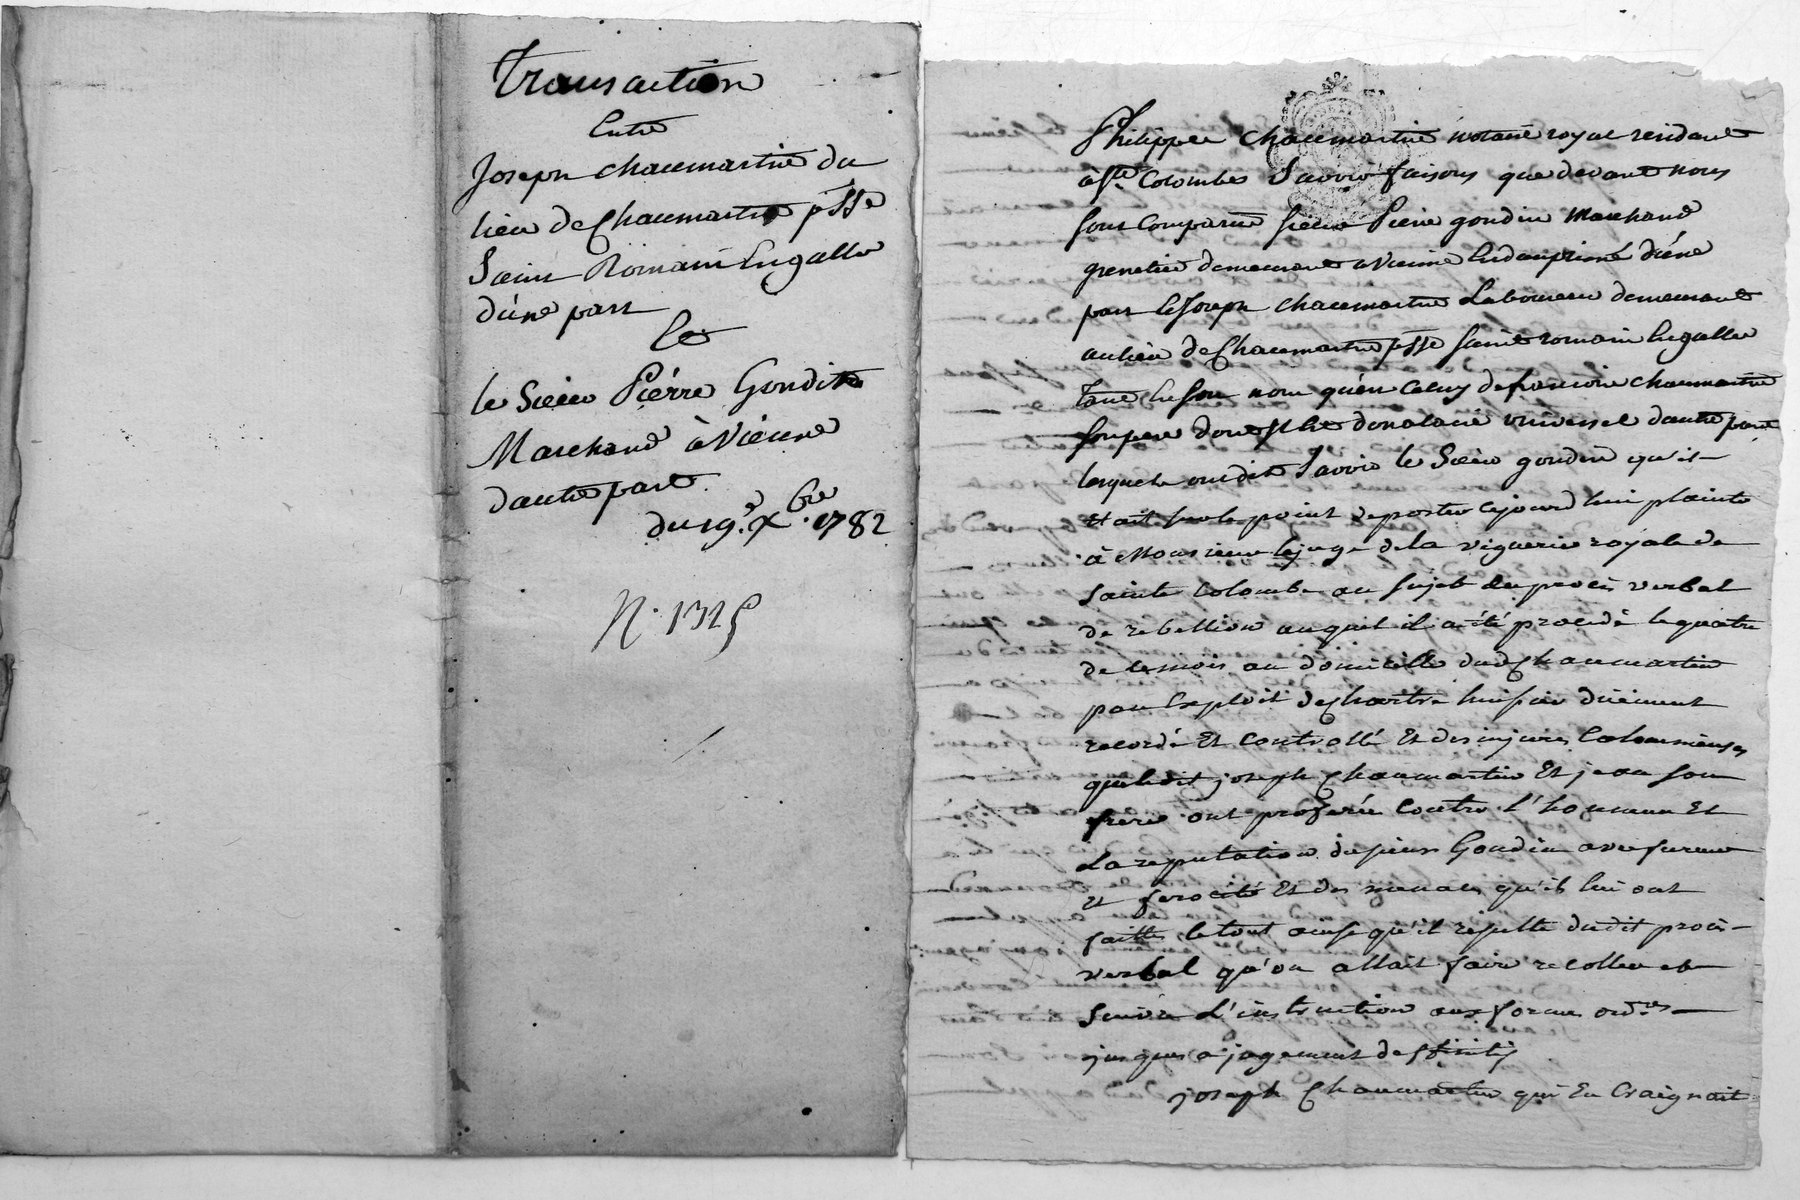 Transaction
Entre
Joseph chaumartin du
lieu de Chaumartin psse
Saint Romain Engalle
d'une part
Et
le Sieur Pierre Gondin
Marchand à Vienne
dautre part
du 19e Xbre 1782
N. 1325
Philippe Chaumartin notaire royal residant
à Ste Colombe Savoir faisons que devant nous
sont comparus sieur Pierre gondin Marchand
grenetier demeurant a Vienne En dauphiné d'une
part Et Joseph chaumartin Laboureur demeurant
au lieu de Chaumartin psse saint romain Engalle
tant En son nom qu'en celuy de francois chaumartin
son pere dont Il Est donataire universel dautre part
lesquels ont dit Savoir le Sieur gondin qu'il
Etait sur le point de porter cejourd'hui plainte
à Monsieur le juge de la viguerie royale de
Sainte Colombe au sujet du procès verbal
de rebellion auquel il a été procedé le quatre
de ce mois au domicille dud Chaumartin
par Exploit de Chartre huissier duëment
recordé Et controllé Et des injures Calomnieuses
que ledit joseph Chaumartin Et jean son
frere ont proferées contre l'honneur Et
La reputation du sieur Gondin avec fureur
et ferocité Et des menaces qu'ils lui ont
faittes, le tout ainsi qu'il résulte dudit procès-
verbal qu'on allait faire recoller et
suivre L'instruction aux formes ordres
jusques a jugement deffinitif
joseph Chaumartin qui En Craignait